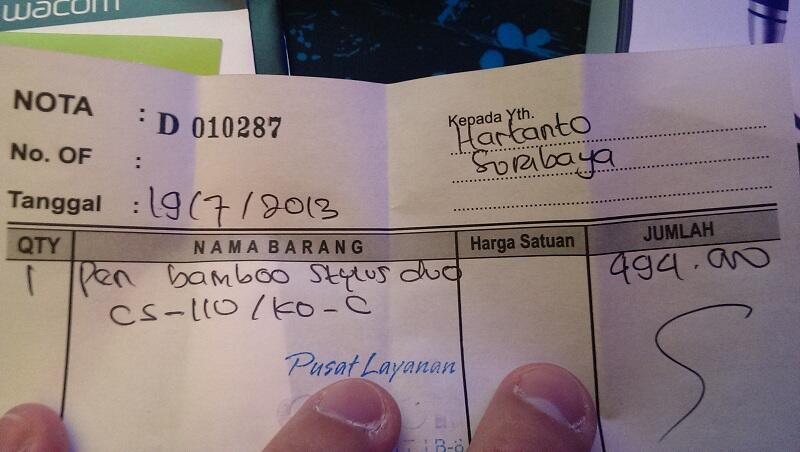 wacom
NOTA : D 010287
Kepada Yth.
Hartanto
No. OF :
Surabaya
Tanggal : 19/7/2013
QTY NAMA BARANG Harga Satuan JUMLAH
1 Pen bamboo stylus duo 494.000
CS-110/KO-C
Pusat Layanan